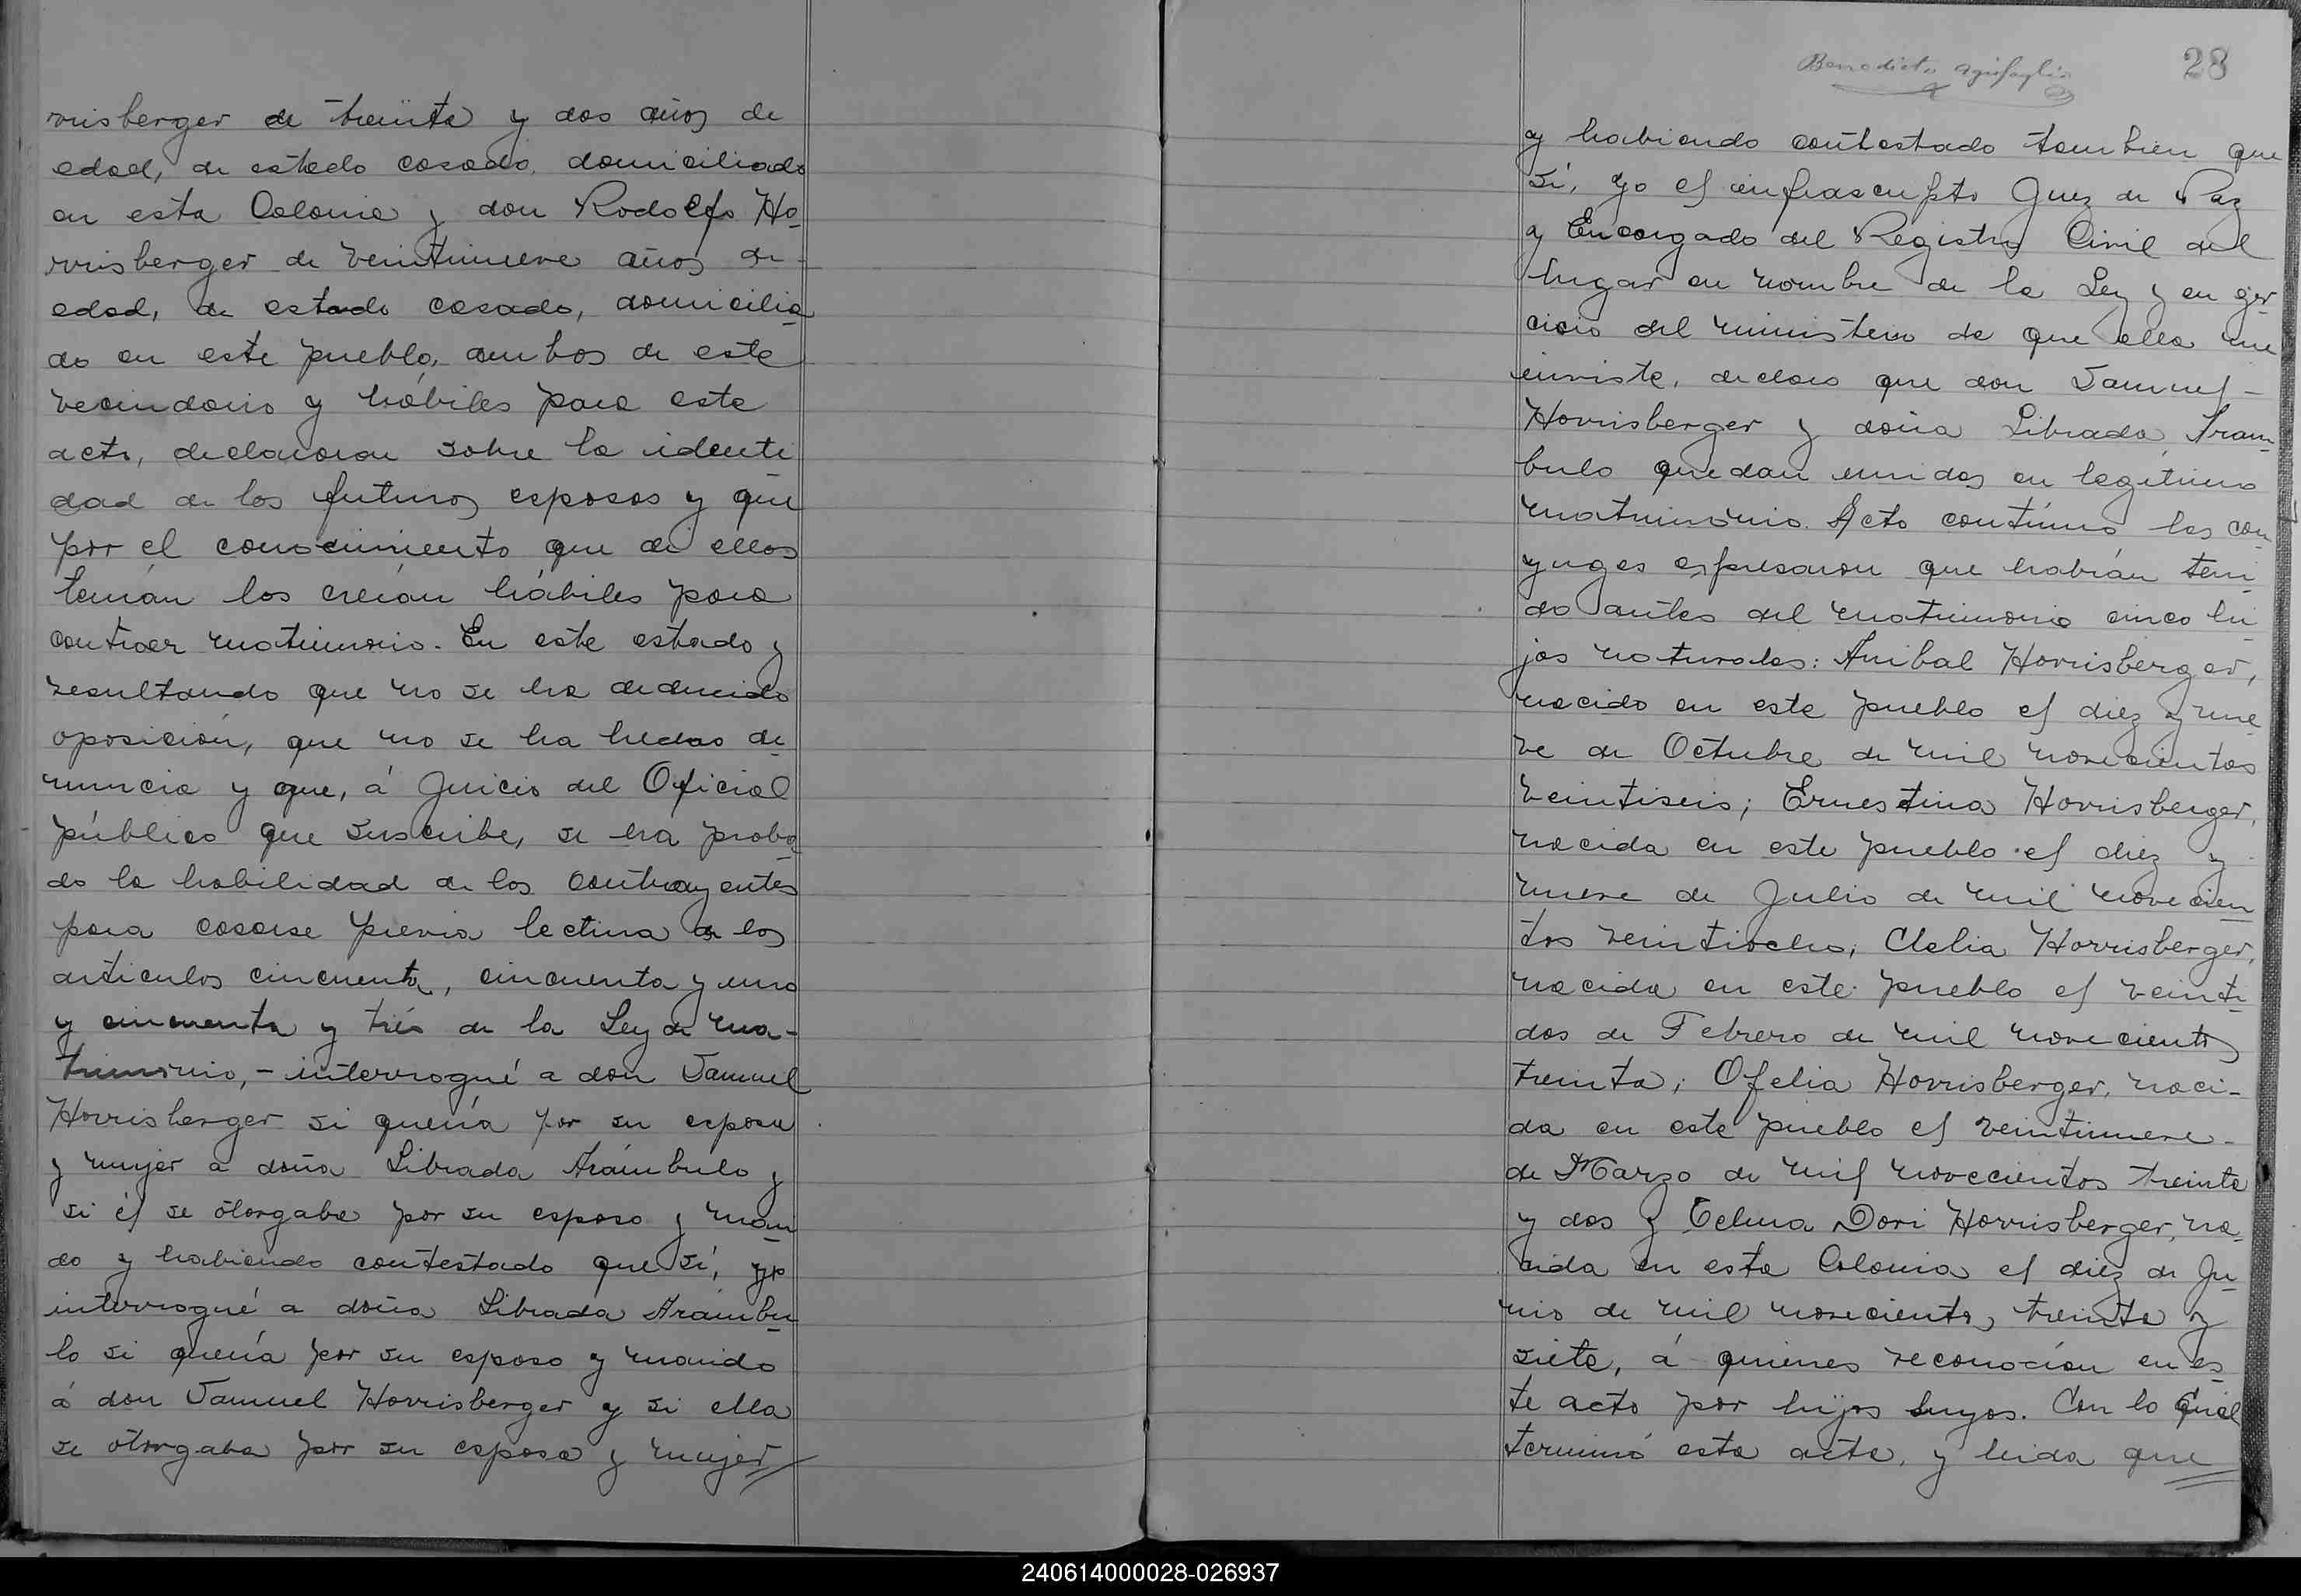 rrisberger de treinta y dos años de
edad, de estado casado, domiciliado
en esta Colonia y don Rodolfo Ho
rrisberger de veintinueve años de
edad, de estado casado, domicilia
do en este pueblo, ambos de este
vecindario y hábiles para este
acto, declararon sobre la identi
dad de los futuros esposos y que
por el conocimiento que de ellos
tenían los creían hábiles para
contraer matrimonio. En este estado y
resultando que no se ha deducido
oposición, que no se ha hecho de
nuncia y que, á juicio del Oficial
público que suscribe, se ha proba
do la habilidad de los contrayentes
para casarse previa lectura de los
artículos cincuenta, cincuenta y uno
y cincuenta y tres de la Ley de ma-
trimonio, - interrogué a don Samuel
Horrisberger si quería por su esposa
y mujer a doña Librada Arámbulo y
si él se otorgaba por su esposo y mari
do y habiendo contestado que sí, yo
interrogué a doña Librada Arámbu
lo si quería por su esposo y marido
á don Samuel Horrisberger y si ella
se otorgaba por su esposa y mujer
28
Benedicto
y habiendo contestado tambien que
sí, yo el infrascripto Juez de Paz
y Encargado del Registro Civil del
lugar en nombre de la Ley y en ejer
cicio del ministerio de que ella me
inviste, declaro que don Samuel -
Horrisberger y doña Librada Aram
bulo quedan unidos en legítimo
matrimonio. Acto contínuo los con
yuges expresaron que habían teni
do antes del matrimonio cinco hi
jos naturales: Anibal Horrisberger,
nacido en este pueblo el diez y nue
ve de Octubre de mil novecientos
veintiseis; Ernestina Horrisberger,
nacida en este pueblo el diez y
nueve de Julio de mil novecien
tos veintiocho; Clelia Horrisberger,
nacida en este pueblo el veinti
dos de Febrero de mil novecientos
treinta; Ofelia Horrisberger, naci-
da en este pueblo el veintinueve -
de Marzo de mil novecientos treinta
y dos y Telma Dori Horrisberger, na
cida en esta Colonia el diez de Ju
nio de mil novecientos treinta y
siete, á quienes reconocían en es
te acto por hijos suyos. Con lo qual
terminó esta acta, y leida que
240614000028-026937